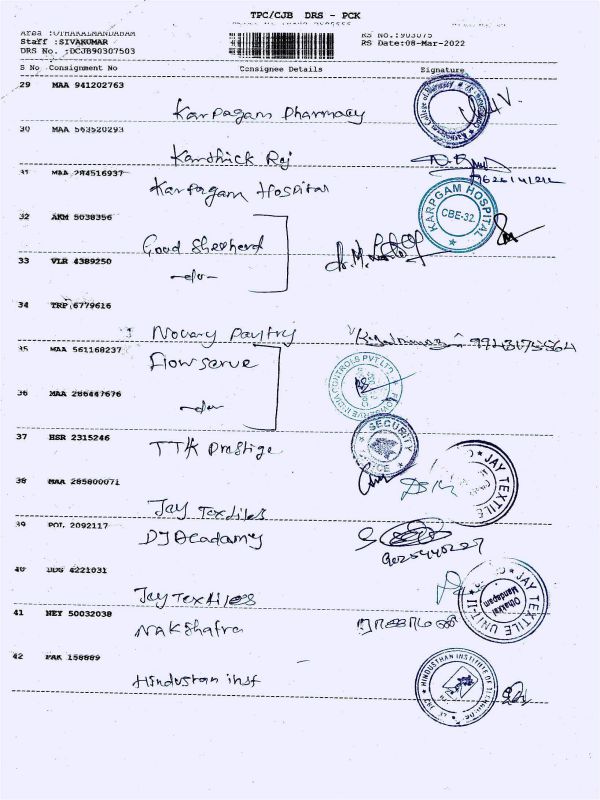 TPC/CJB DRS - PCK
Area :OTHAKALMANDABAM
Staff :SIVAKUMAR
DRS No. :DCJB90307503
RS No.:903075
RS Date:08-Mar-2022
S No Consignment No Consignee Details Signature
29 MAA 941202763
Karpagam Pharmacy
30 MAA 563520293
Karthick Raj
31 MAA 284516937
Karpagam Hospital
KARPGAM HOSPITAL
CBE-32.
32 AKM 5038356
Good Shepherd
33 VLR 4389250
-do-
34 TRP 6779616
Novary Pavtry
35 MAA 561168237
Flowserve
36 MAA 286447676
-do-
37 HSR 2315246
SECURITY
TTK Prestige
38 MAA 285800071
JAY TEXTILE
Jay Textiles
39 POL 2092117
DJ Academy
9025440227
40 UDG 4221031
Jay Textiles
JAY TEXTILE UNIT-II
Othakkal
Mandapam
41 NEY 50032038
Nakshatra
42 PAK 158889
Hindustan inst
HINDUSTHAN INSTITUTE OF TECHNOLOGY